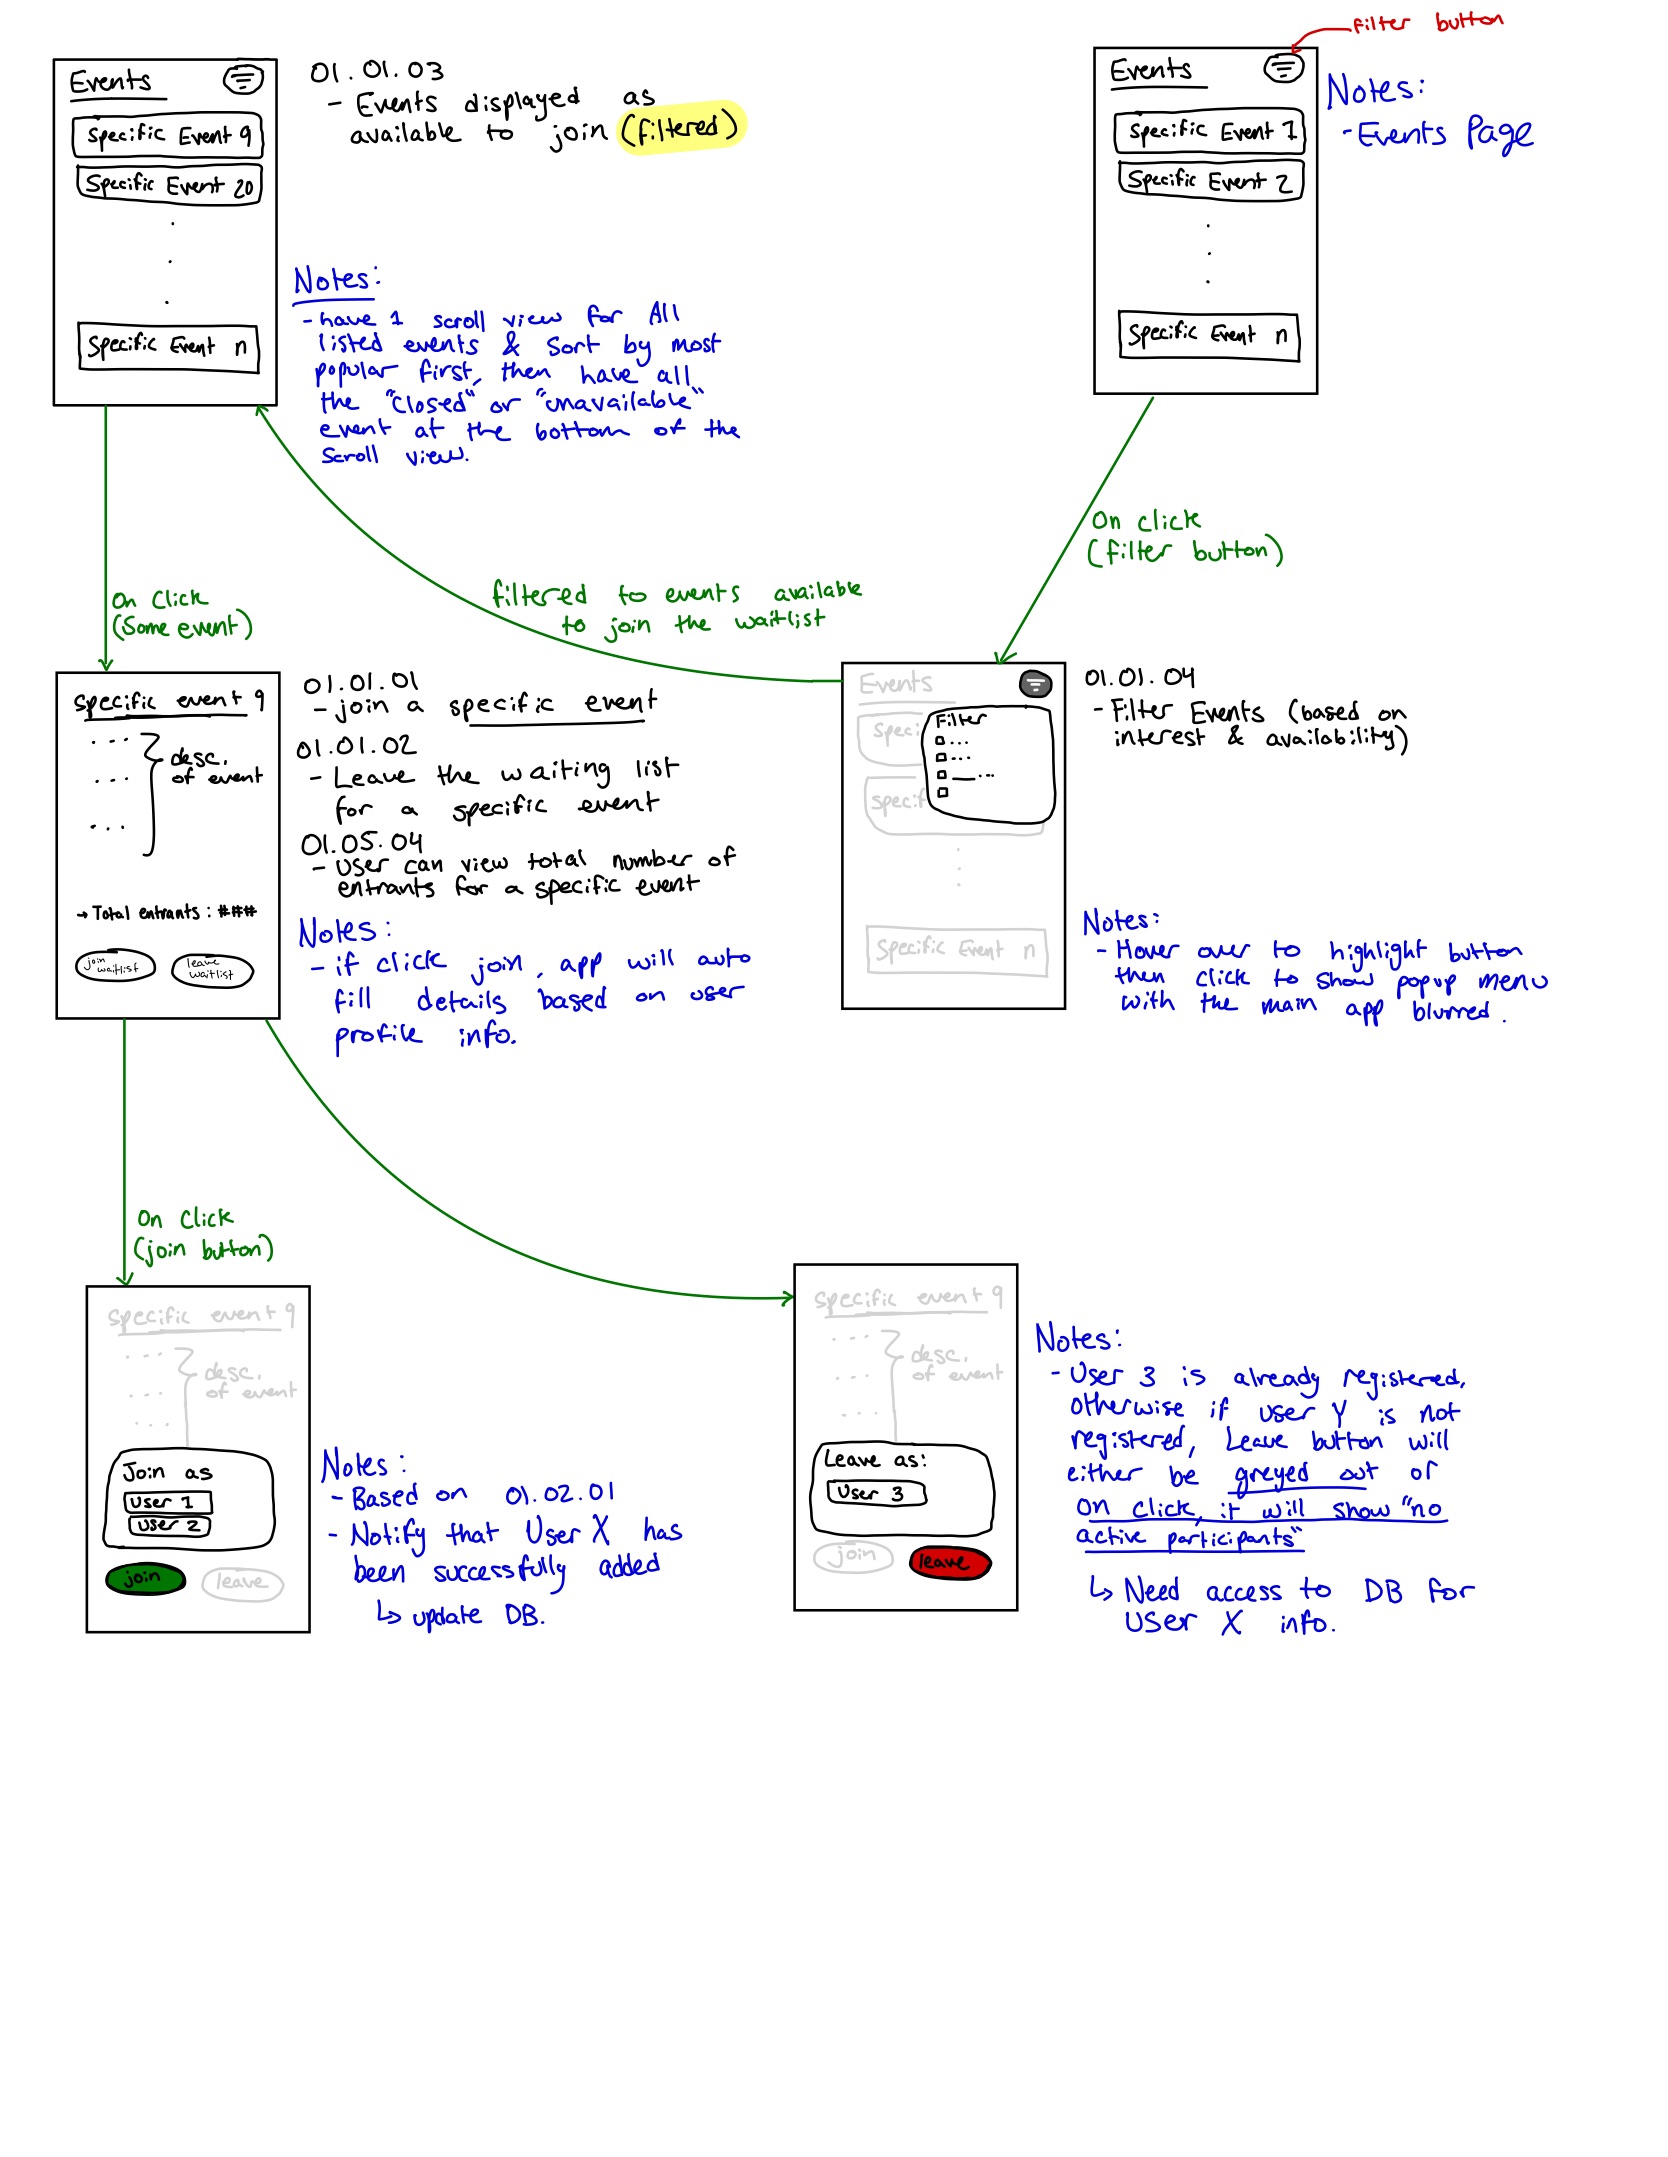 filter button
Events
Specific Event 9
Specific Event 20
Specific Event n
01.01.03
- Events displayed as
available to join (filtered)
Notes:
- have 1 scroll view for All
listed events & Sort by most
popular first, then have all
the "closed" or "unavailable"
event at the bottom of the
scroll view.
Events
Specific Event 1
Specific Event 2
Specific Event n
Notes:
- Events Page
On click
(filter button)
filtered to events available
to join the waitlist
On Click
(Some event)
specific event 9
desc.
of event
→ Total entrants : ###
join
waitlist
leave
waitlist
01.01.01
- join a specific event
01.01.02
- Leave the waiting list
for a specific event
01.05.04
- User can view total number of
entrants for a specific event
Notes:
- if click join, app will auto
fill details based on user
profile info.
Events
Speci
specif
Specific Event n
Filter
01.01.04
- Filter Events (based on
interest & availability)
Notes:
- Hover over to highlight button
then click to show popup menu
with the main app blurred.
On Click
(join button)
specific event 9
desc.
of event
Join as
User 1
User 2
join
leave
Notes:
- Based on 01.02.01
- Notify that User X has
been successfully added
↳ update DB.
specific event 9
desc.
of event
Leave as:
User 3
join
leave
Notes:
- User 3 is already registerred,
otherwise if user Y is not
registered, Leave button will
either be greyed out or
on click, it will show "no
active participants"
↳ Need access to DB for
User X info.